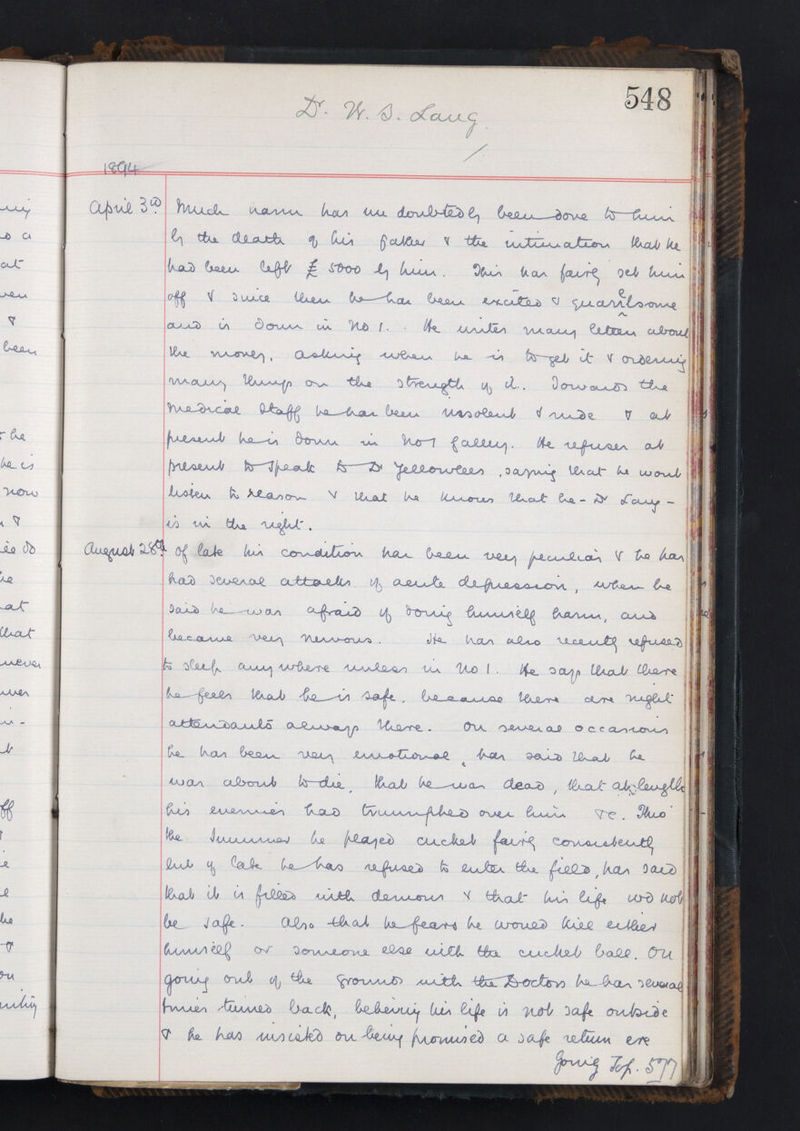 548
Dr. W. S. Lang
1894
April 3rd. Much harm has undoubtedly been done to him
by the death of his father & the intimation that he
had been left £5000 by him. This has fairly set him
off & since then he has been excited & quarrelsome
and is down in No 1. He writes many letters about
the money, asking when he is to get it & ordering
many things on the strength of it. Towards the
Medical Staff he has been insolent & rude & at
present he is down in No 1 gallery. He refuses at
present to speak to Dr Yellowlees, saying that he wont
listen to reason & that he knows that he - Dr Lang -
is in the right.
August 28th. Of late his condition has been very peculiar & he has
had several attacks of acute depression, when he
said he was afraid of doing himself harm, and
became very nervous. He has also recently refused
to sleep anywhere unless in No 1. He says that there
he feels that he is safe, because there are night
attendants always there. On several occasions
he has been very emotional, has said that he
was about to die, that he was dead, that at length
his enemies had triumphed over him &c. Thro'
the Summer he played cricket fairly consistently
but of late he has refused to enter the field, has said
that it is filled with demons & that his life wd not
be safe. Also that he fears he would kill either
himself or someone else with the cricket ball. On
going out of the grounds with the Doctors he has several
times turned back, believing his life is not safe outside
& he has insisted on being promised a safe return ere
going To p. 577